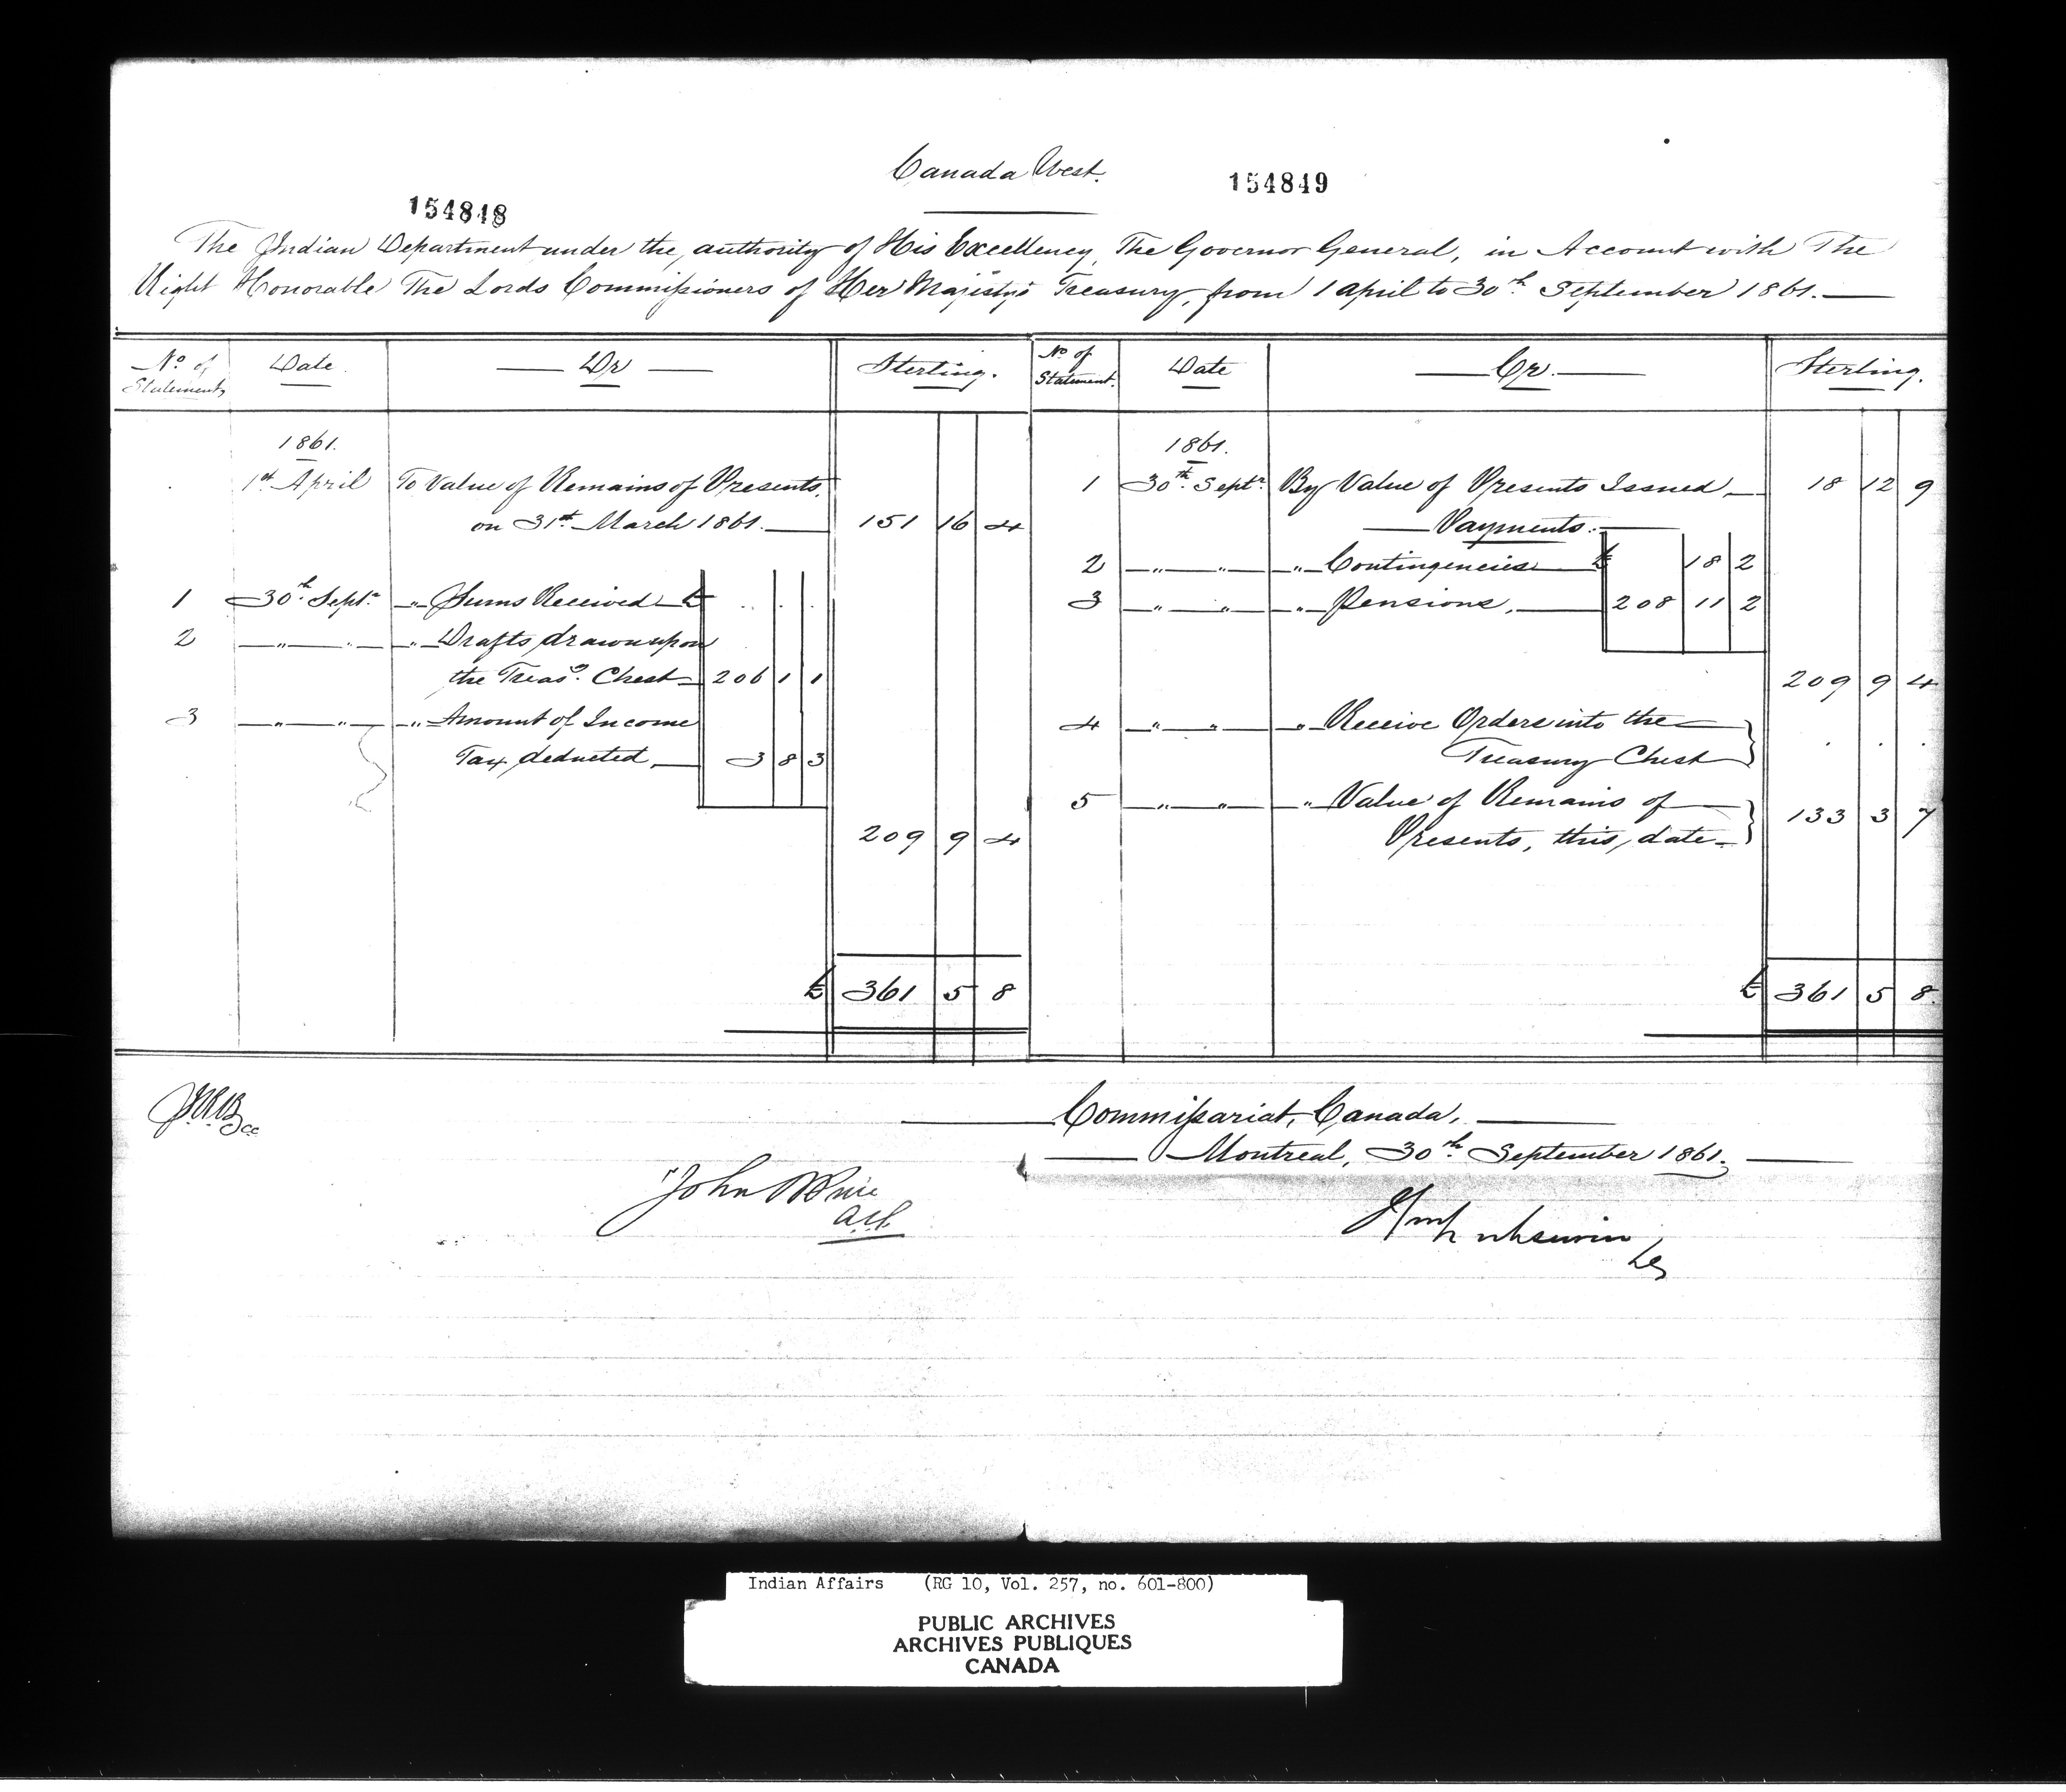 Canada West.
154848
154849
The Indian Department under the authority of His Excellency, The Governor General, in Account with The
Right Honorable The Lords Commissioners of Her Majesty's Treasury, from 1 April to 30th September 1861.
No of Statements
Date
Dr
Sterling.
1861.
1st April To Value of Remains of Presents,
on 31st March 1861. 151 16 4
1 30th Septr " Sums Received £ . . .
2 " " " Drafts drawn upon
the Treasy. Chest 206 1 1
3 " " " Amount of Income
Tax deducted 3 8 3
209 9 4
£ 361 5 8
No of Statement.
Date
Cr.
Sterling.
1861.
1 30th Septr By Value of Presents Issued 18 12 9
Payments.
2 " " " Contingencies £ 18 2
3 " " " Pensions, 208 11 2
209 9 4
4 " " " Receive Orders into the
Treasury Chest . . .
5 " " " Value of Remains of
Presents, this date 133 3 7
£ 361 5 8.
Commissariat, Canada,
Montreal, 30th September 1861.
John
Indian Affairs (RG 10, Vol. 257, no. 601-800)
PUBLIC ARCHIVES
ARCHIVES PUBLIQUES
CANADA